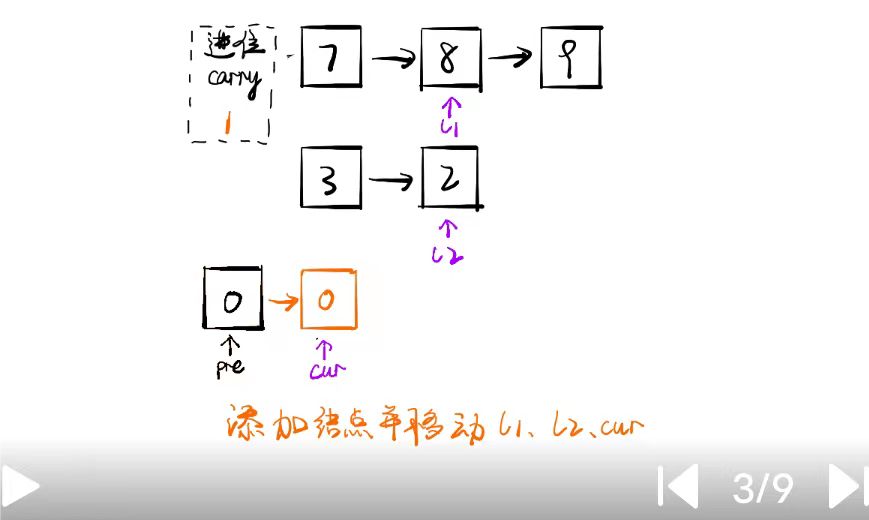 进位
carry
1
7 → 8 → 9
↑
l1
3 → 2
↑
l2
0 → 0
↑ ↑
pre cur
添加结点并移动 l1、l2、cur
3/9